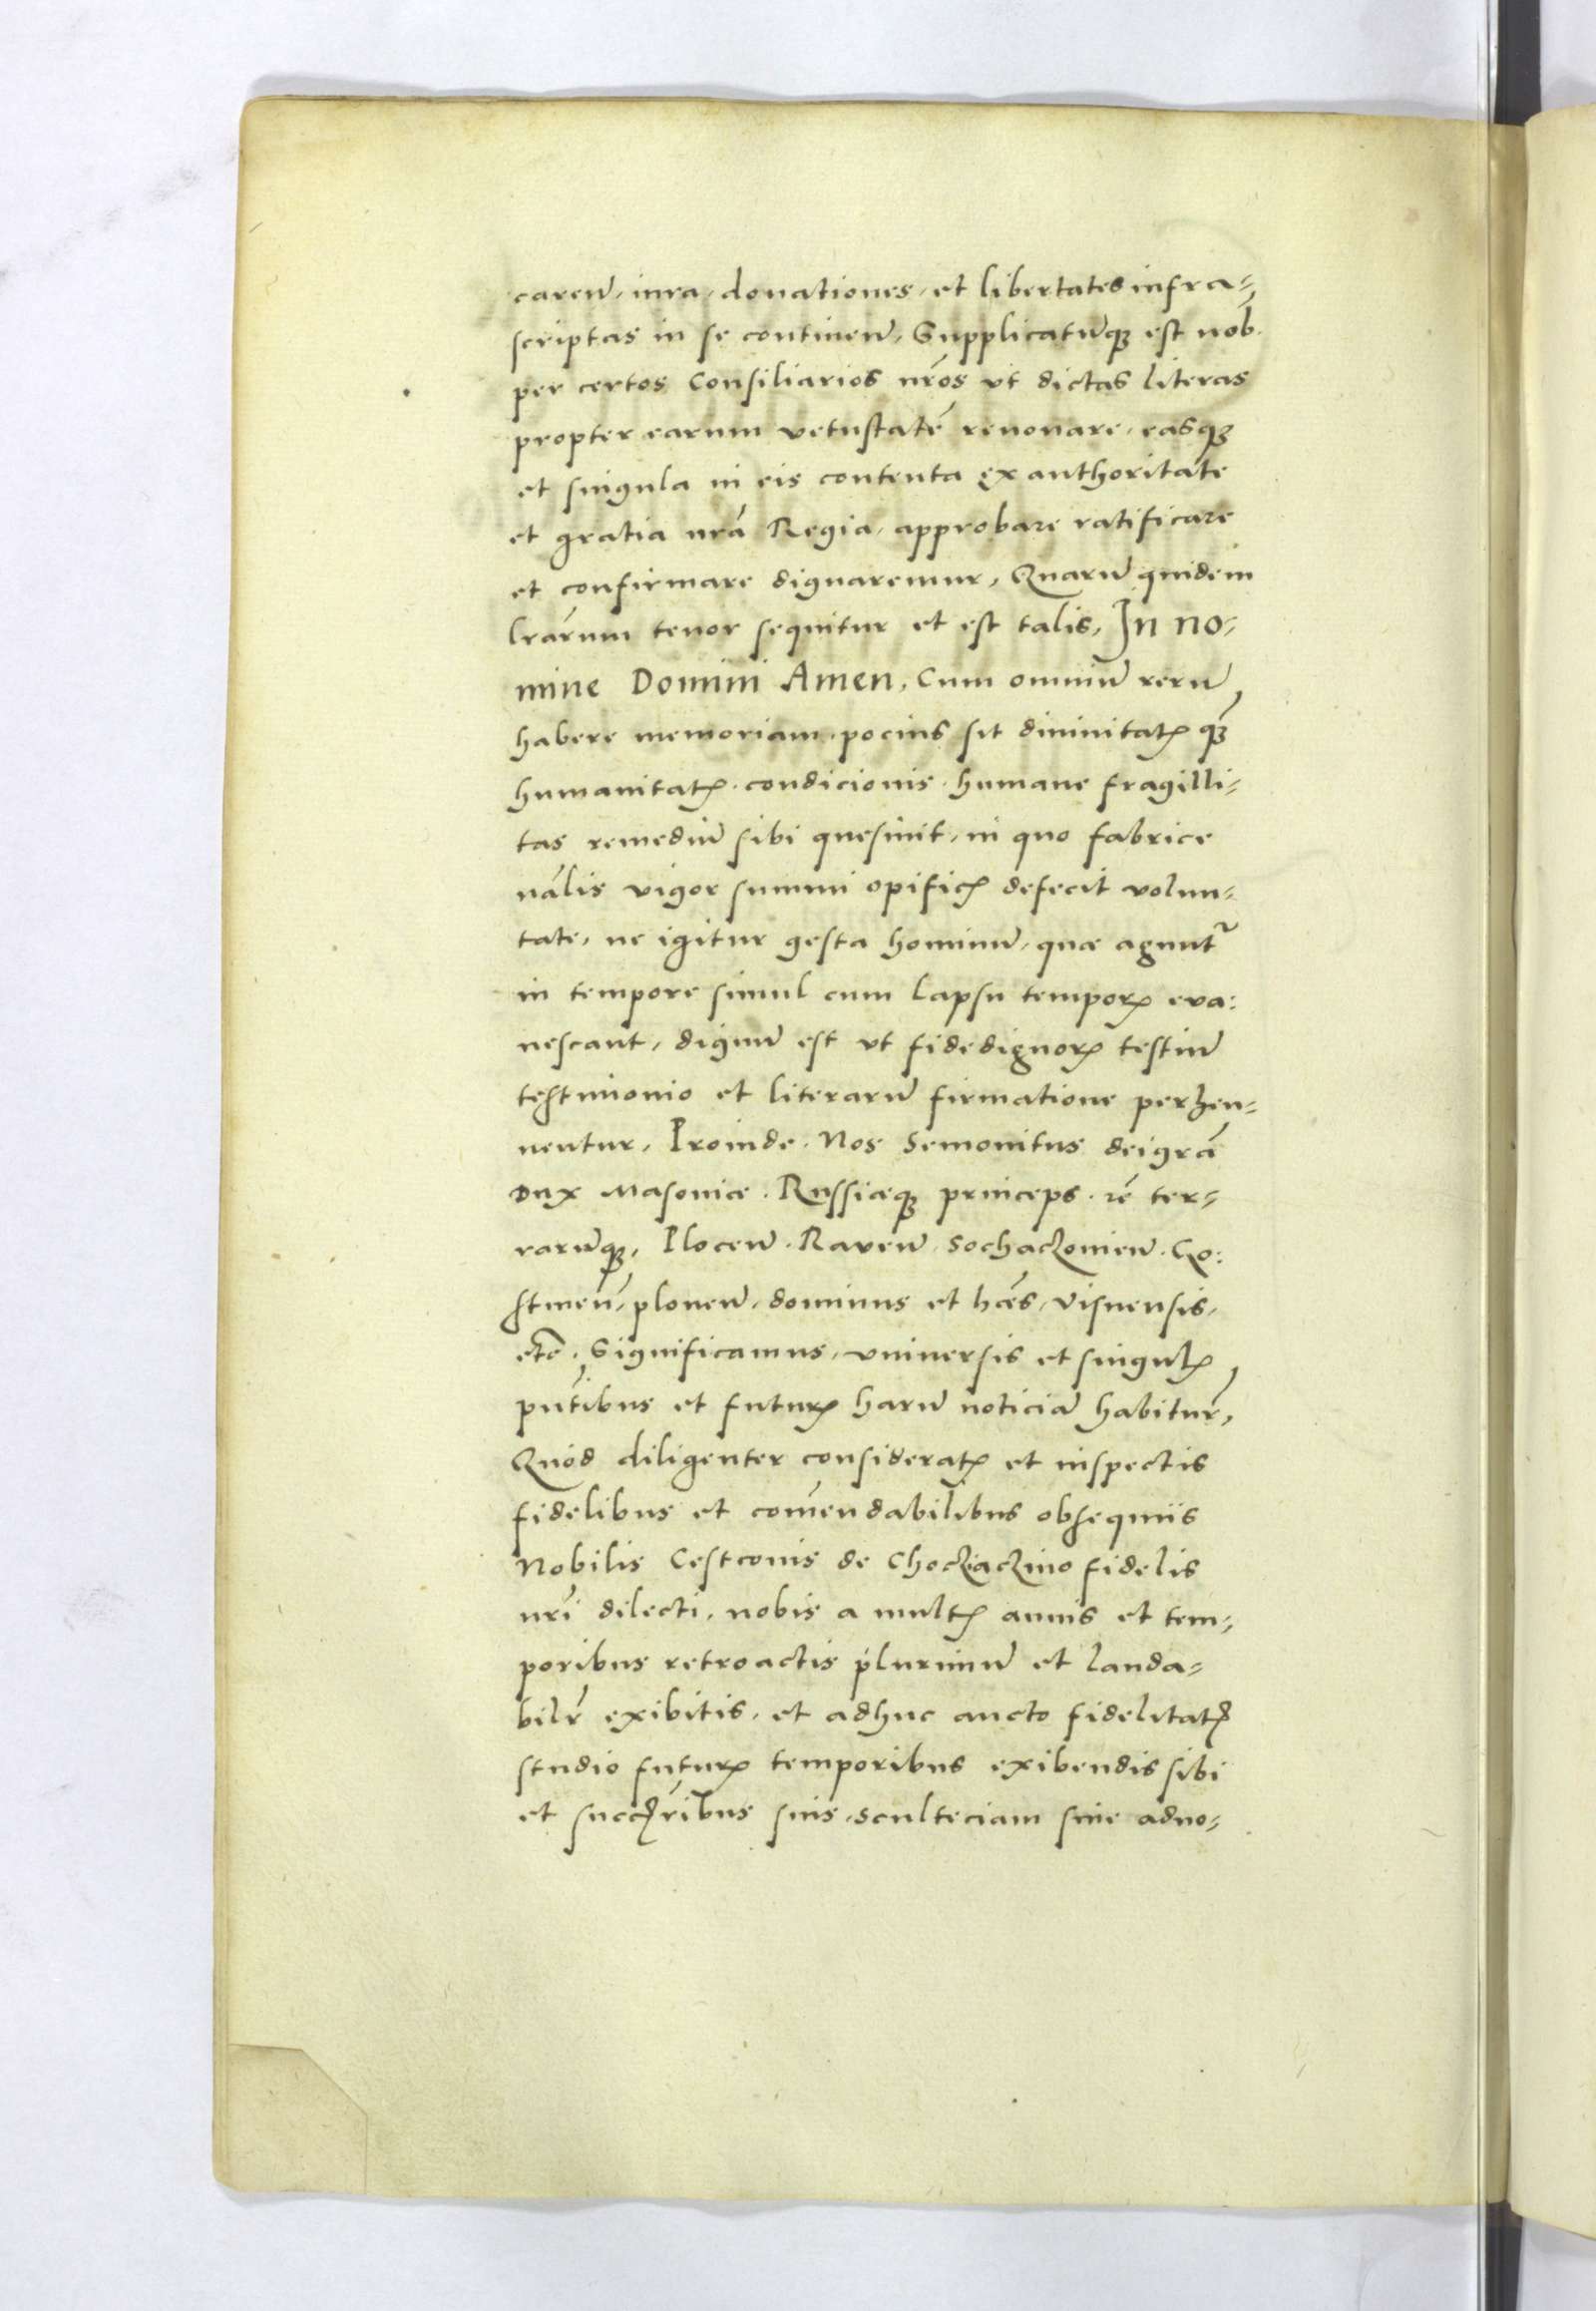 caren̄, iura, donationes, et libertates infra-
scriptas in se continen̄, Supplicatūq₃ est nob.
per certos Consiliarios nr̄os vt dictas literas
propter earum vetustatē renouare, easq₃
et singula in eis contenta ex authoritate
et gratia nrā Regia, approbare ratificare
et confirmare dignaremur, Quarū quidem
lrārum tenor sequitur et est talis, In no-
mine Domini Amen, Cum omniū rerū
habere memoriam, pocius sit diuinitatꝭ q₃
humanitatꝭ. condicionis. humane fragilli-
tas remediū sibi quesiuit, in quo fabrice
nālis vigor summi opificꝭ defecit volun-
tate, ne igitur gesta hominū, quæ agunt᷑
in tempore simul cum lapsu temporꝝ eva-
nescant, dignū est vt fidedignorꝝ testiū
testimonio et literarū firmatione perhen-
nentur, Proinde. Nos Semouitus deigrā
Dux Masouiæ. Russiæq₃ princeps. rē ter-
rarūq₃, Plocen̄. Raven̄. Sochaczouien̄. Go-
stinen̄, plonen̄, dominus et hæs, Visnensis,
etc̄. Significamus, vniuersis et singulꝭ
pn̄tibus et futurꝭ harū noticiā habitur̄,
Quod diligenter consideratꝭ et inspectis
fidelibus et com̄endabilibus obsequiis
Nobilis Cestconis de Choczaczino fidelis
nr̄i dilecti, nobis a multꝭ annis et tem-
poribus retroactis plurimū et lauda-
bilr̄ exibitis, et adhuc aucto fidelitatꝭ
studio futurꝭ temporibus exibendis sibi
et succꝭr̄ibus suis, sculteciam siue aduo-